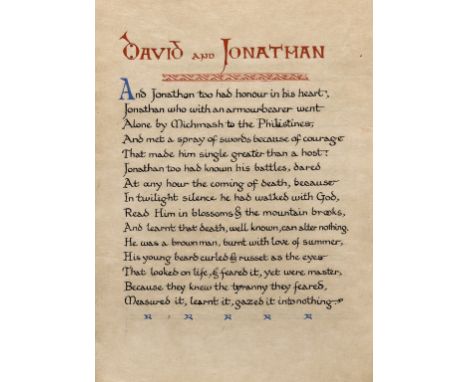 DAVID AND JONATHAN
And Jonathan too had honour in his heart,
Jonathan who with an armourbearer went
Alone by Michmash to the Philistines,
And met a spray of swords because of courage
That made him single greater than a host:
Jonathan too had known his battles, dared
At any hour the coming of death, because
In twilight silence he had walked with God,
Read Him in blossoms & the mountain brooks,
And learnt that death, well known, can alter nothing.
He was a brown man, burnt with love of summer,
His young beard curled & russet as the eyes
That looked on life, & feared it, yet were master,
Because they knew the tyranny they feared,
Measured it, learnt it, gazed it into nothing.